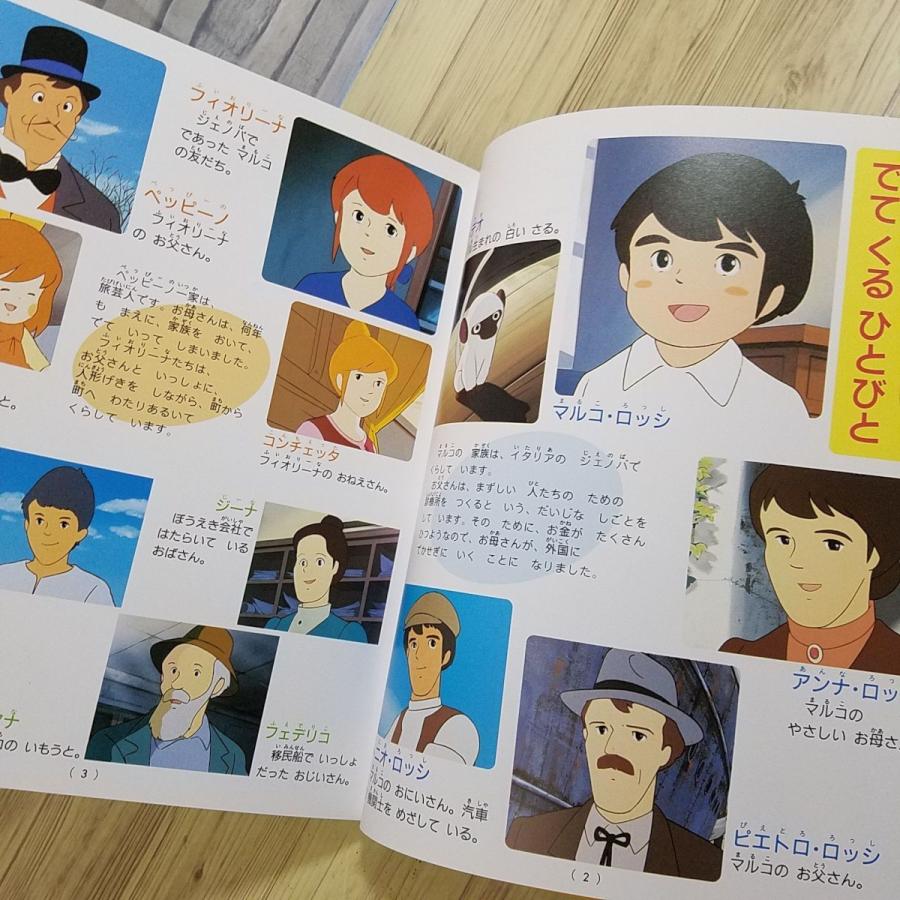 でてくるひとびと
マルコ・ロッシ
生まれの 白い さる。
マルコの 家族は、イタリアの ジェノバで
くらして います。
お父さんは、まずしい 人たちの ための
診療所を つくると いう、だいじな しごとを
して います。その ために、お金が たくさん
ひつようなので、お母さんが、外国に
でかせぎに いく ことに なりました。
アンナ・ロッ
マルコの
やさしい お母さ
ニオ・ロッシ
マルコの おにいさん。汽車
機関士を めざして いる。
ピエトロ・ロッシ
マルコの お父さん。
(2)
フィオリーナ
ジェノバで
であった マルコ
の友だち。
ペッピーノ
フィオリーナ
の お父さん。
ペッピーノ一家は、
旅芸人です。お母さんは、何年
も まえに、家族を おいて、
でて いって しまいました。
フィオリーナたちは、
お父さんと いっしょに、
人形げきを しながら、町から
町へ わたりあるいて
くらして います。
コンチェッタ
フィオリーナの おねえさん。
と。
ジーナ
ぼうえき会社で
はたらいて いる
おばさん。
ナ
の いもうと。
フェデリコ
移民船で いっしょ
だった おじいさん。
(3)